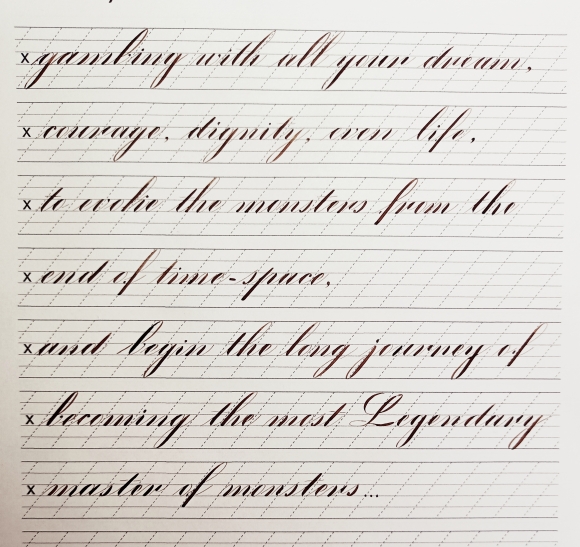 x gambing with all your dream,
x courage, dignity, even life,
x to evoke the monsters from the
x end of time-space,
x and begin the long journey of
x becoming the most Legendary
x master of monsters...